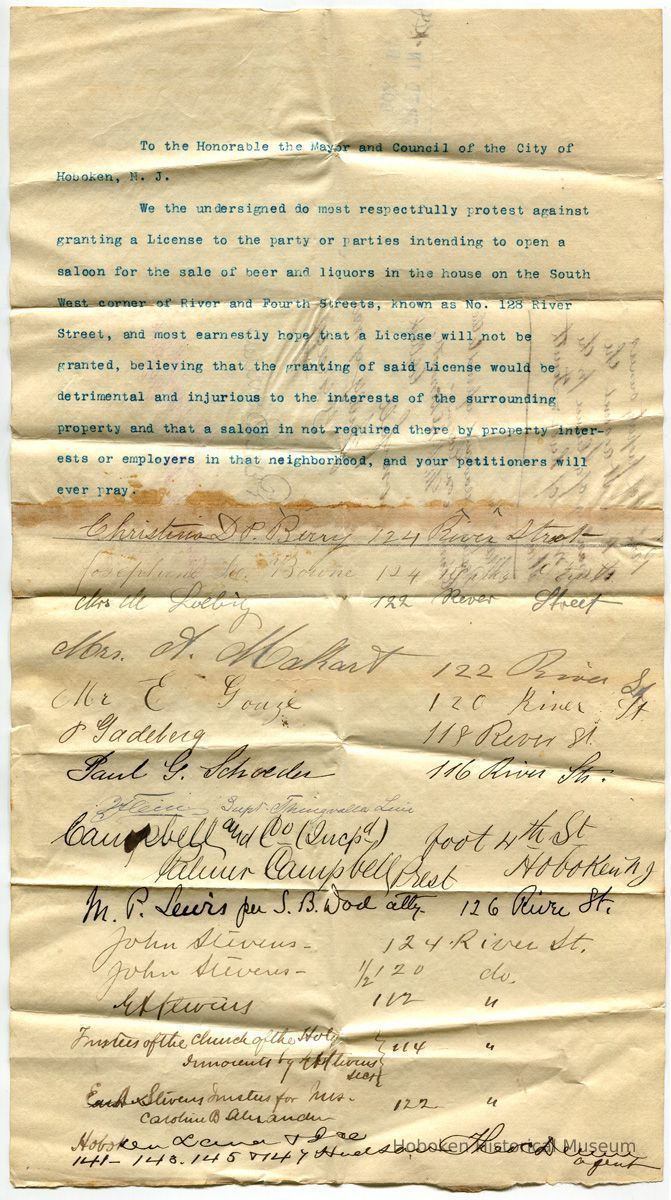 To the Honorable the Mayor and Council of the City of
Hoboken, N. J.
We the undersigned do most respectfully protest against
granting a License to the party or parties intending to open a
saloon for the sale of beer and liquors in the house on the South
West corner of River and Fourth Streets, known as No. 128 River
Street, and most earnestly hope that a License will not be
granted, believing that the granting of said License would be
detrimental and injurious to the interests of the surrounding
property and that a saloon in not required there by property inter-
ests or employers in that neighborhood, and your petitioners will
ever pray.
Christina D. P. Berry 124 River Street
Bowne 124
Mrs M Loebig 122 River Street
Mrs. A. Makart 122 River St
Mr E Gouzé 120 River St
Gadeberg 118 River St.
Paul G. Schoeder 116 River Str.
Supt. Thingvalla Line
Campbell and Co (Incpd) foot 4th St
Palmer Campbell Prest Hoboken NJ
M. P. Lewis per S. B. Dod atty. 126 River St.
John Stevens - 124 River St.
John Stevens - 1/2 120 do.
112 "
Trustees of the Church of the Holy
Innocents by secy 114 "
Stevens Trustee for Mrs.
Caroline B Alexander 122 "
Hoboken Land & Ice
141 - 143. 145 & 147 Hudson agent
Hoboken Historical Museum